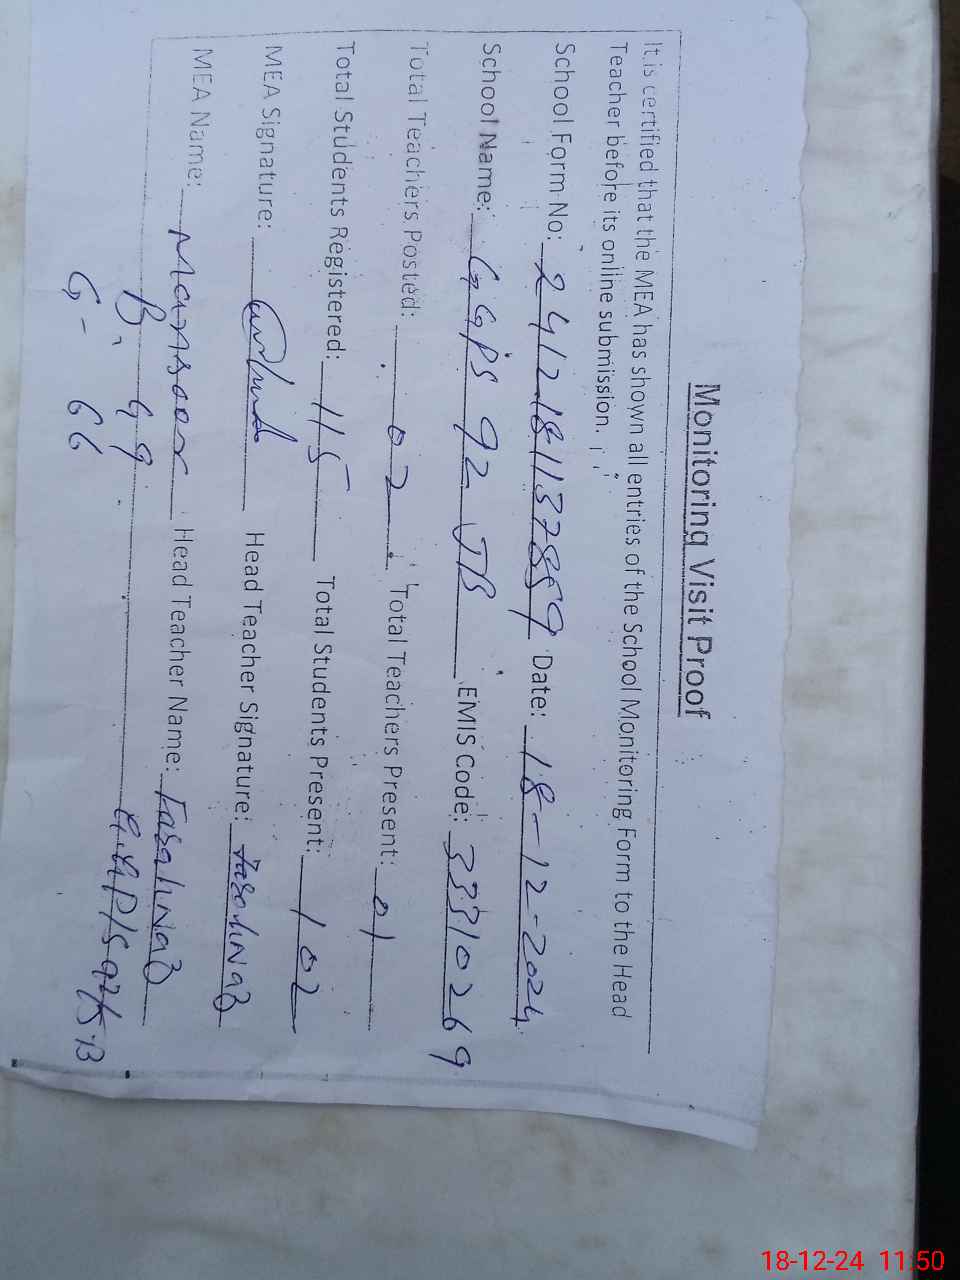 Monitoring Visit Proof
It is certified that the MEA has shown all entries of the School Monitoring Form to the Head
Teacher before its online submission.
School Form No: 2412181137859 Date: 18-12-2024
School Name: GGPS 92 JB EMIS Code: 33310269
Total Teachers Posted: 02 Total Teachers Present: 01
Total Students Registered: 115 Total Students Present: 102
MEA Signature: Head Teacher Signature:
MEA Name: Mansoor Head Teacher Name:
B- 49
G- 66
18-12-24 11:50